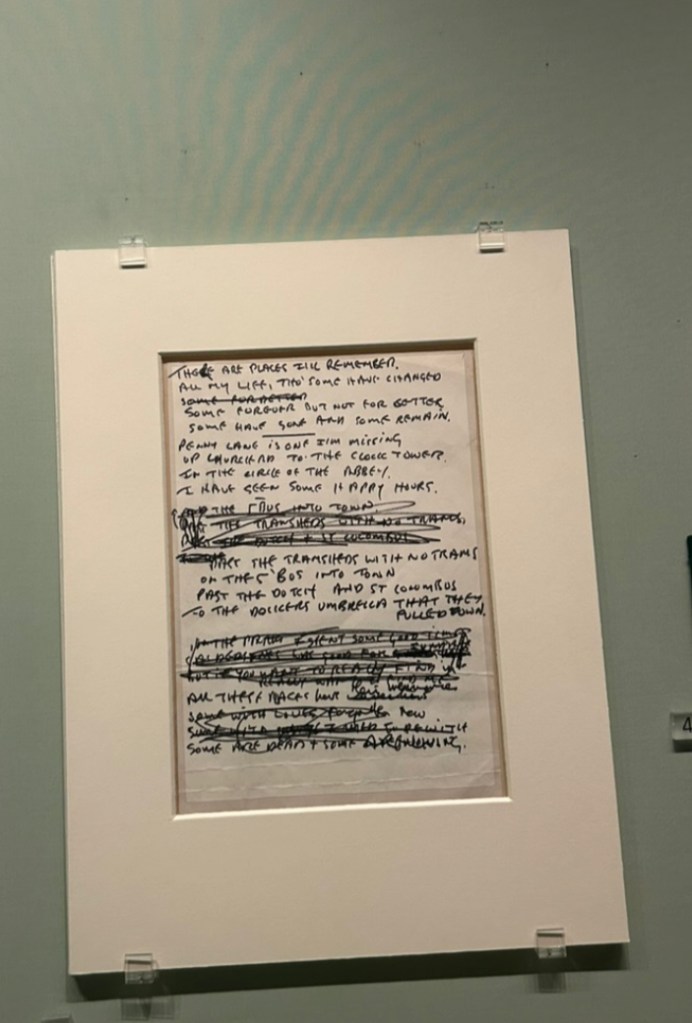 THERE ARE PLACES I'LL REMEMBER.
ALL MY LIFE, THO' SOME HAVE CHANGED
SOME FOR BETTER
SOME FOREVER BUT NOT FOR BETTER
SOME HAVE GONE AND SOME REMAIN.
PENNY LANE IS ONE I'M MISSING
UP CHURCH RD TO THE CLOCK TOWER.
IN THE CIRCLE OF THE ABBEY.
I HAVE SEEN SOME HAPPY HOURS.
THE 5 BUS INTO TOWN.
THE TRAMSHEDS WITH NO TRAMS,
THE DUTCH + ST COLOMBUS
PAST THE TRAMSHEDS WITH NO TRAMS
ON THE 5 BUS INTO TOWN
PAST THE DUTCH AND ST COLUMBUS
TO THE DOCKERS UMBRELLA THAT THEY
PULLED DOWN.
IN THE I SPENT SOME GOOD TIMES
GOOD FOR
BUT IF YOU WANT TO REALLY FIND
REALLY WHAT
ALL THESE PLACES HAVE
SOME WITH NOW
SOME WITH
SOME ARE DEAD + SOME ARE LIVING.
4